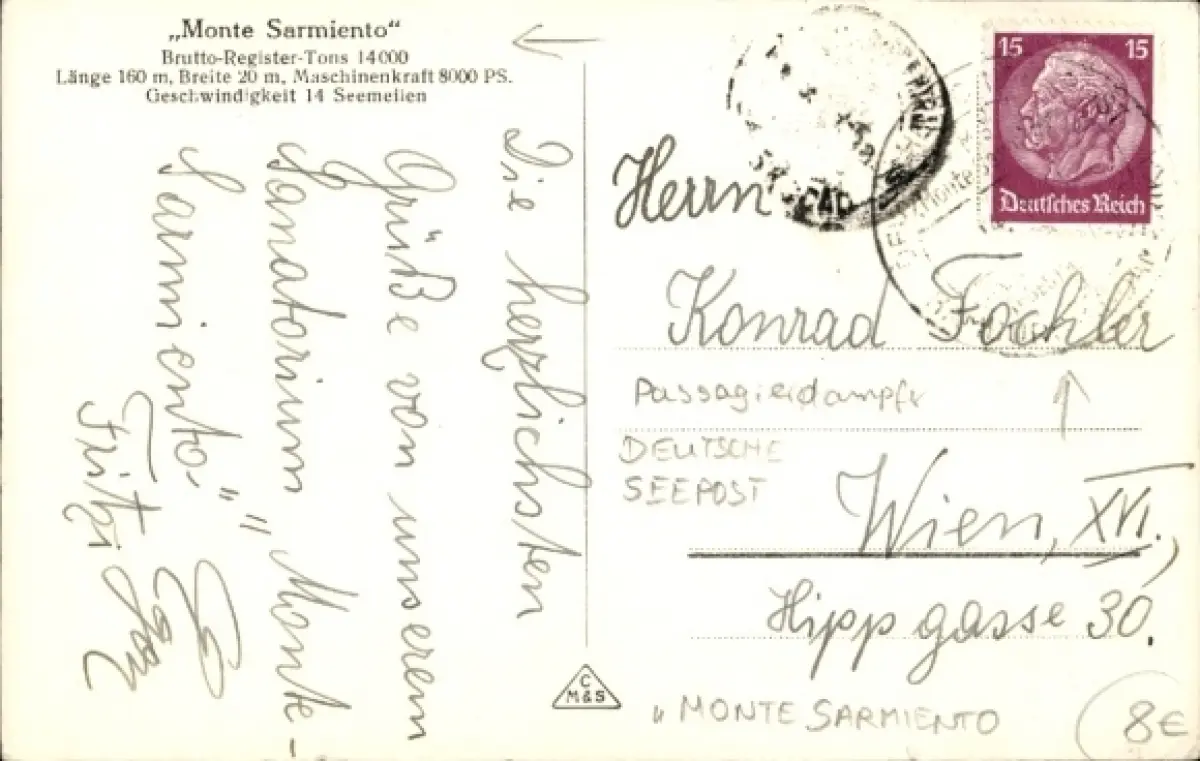 „Monte Sarmiento“
Brutto-Register-Tons 14000
Länge 160 m, Breite 20 m, Maschinenkraft 8000 PS.
Geschwindigkeit 14 Seemeilen
Die herzlichsten
Grüße von unserem
Sanatorium „Monte-
Sarmiento“
Fritzi
Egon
15 15
Deutsches Reich
Herrn
Konrad Fochler
Passagierdampfr
DEUTSCHE
SEEPOST
Wien, XVI.,
Hippgasse 30.
C
M&S
"MONTE SARMIENTO
8€